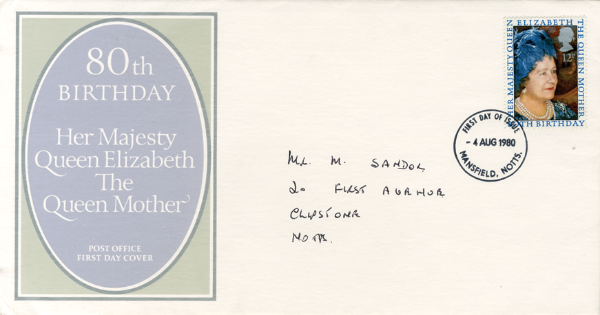 80th
BIRTHDAY
Her Majesty
Queen Elizabeth
The
Queen Mother
POST OFFICE
FIRST DAY COVER
HER MAJESTY QUEEN
ELIZABETH
THE QUEEN MOTHER
TH BIRTHDAY
12
FIRST DAY OF ISSUE
- 4 AUG 1980
MANSFIELD, NOTTS.
MR. M. SANDOR
20 FIRST AVENUE
CLIPSTONE
NOTTS.